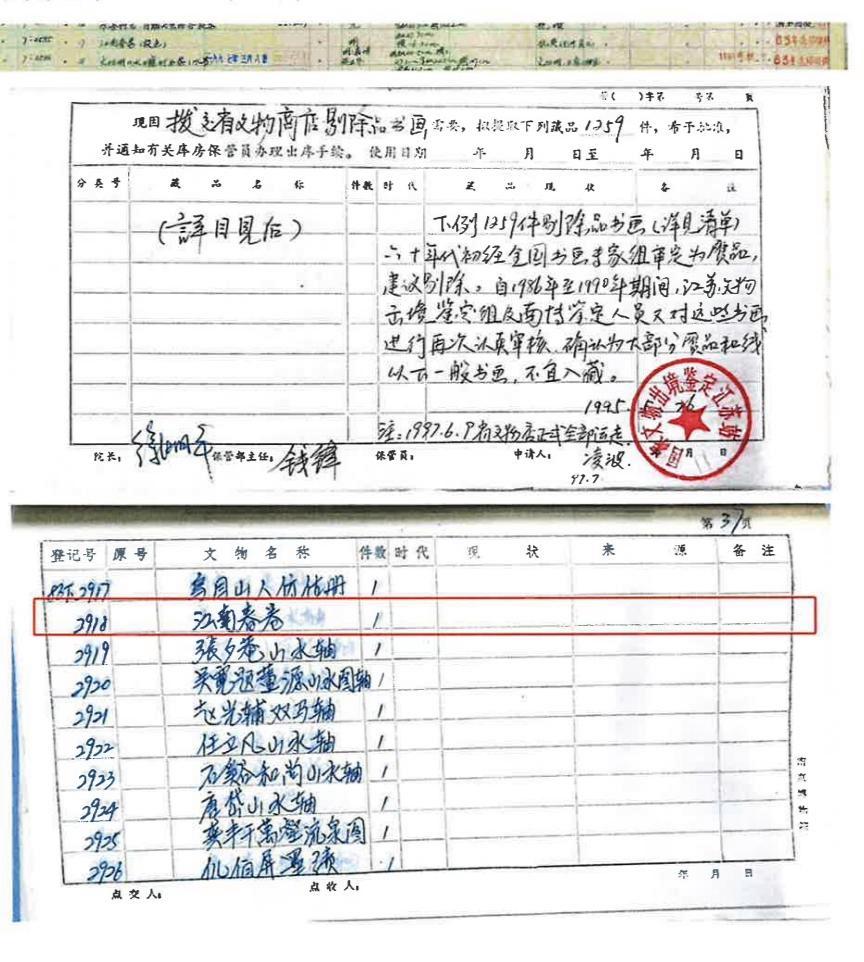 江南春卷(设色)
第( )字第 号第 页
现因 拨交省文物商店剔除品书画 需要,拟提取下列藏品 1259 件,希予批准,
并通知有关库房保管员办理出库手续。 使用日期 年 月 日至 年 月 日
分类号 藏品名称 件数 时代 藏品现状 备注
(詳目見后)
下列1259件剔除品书画(详见清单)
六十年代初经全国书画专家组审定为赝品,
建议剔除。自1986年至1990年期间,江苏文物
出境鉴定组及南博鉴定人员又对这些书画
进行再次认真审核,确认为大部分赝品和
一般书画,不宜入藏。
1995
注:1997.6.9省文物店正式全部运走
院长: 徐湖平 保管部主任: 钱锋 保管员: 申请人: 凌波 年 月 日
97.7
国家文物出境鉴定江苏站
第37页
登记号 原号 文物名称 件数 时代 现状 来源 备注
2917 山人仿倪册 1
2918 江南春卷 1
2919 張夕菴山水轴 1
2920 吴寬题董源山水图轴 1
2921 赵光辅双马轴 1
2922 任立凡山水轴 1
2923 石谿和尚山水轴 1
2924 唐岱山水轴 1
2925 流泉图 1
2926 1
点交人: 点收人: 年 月 日